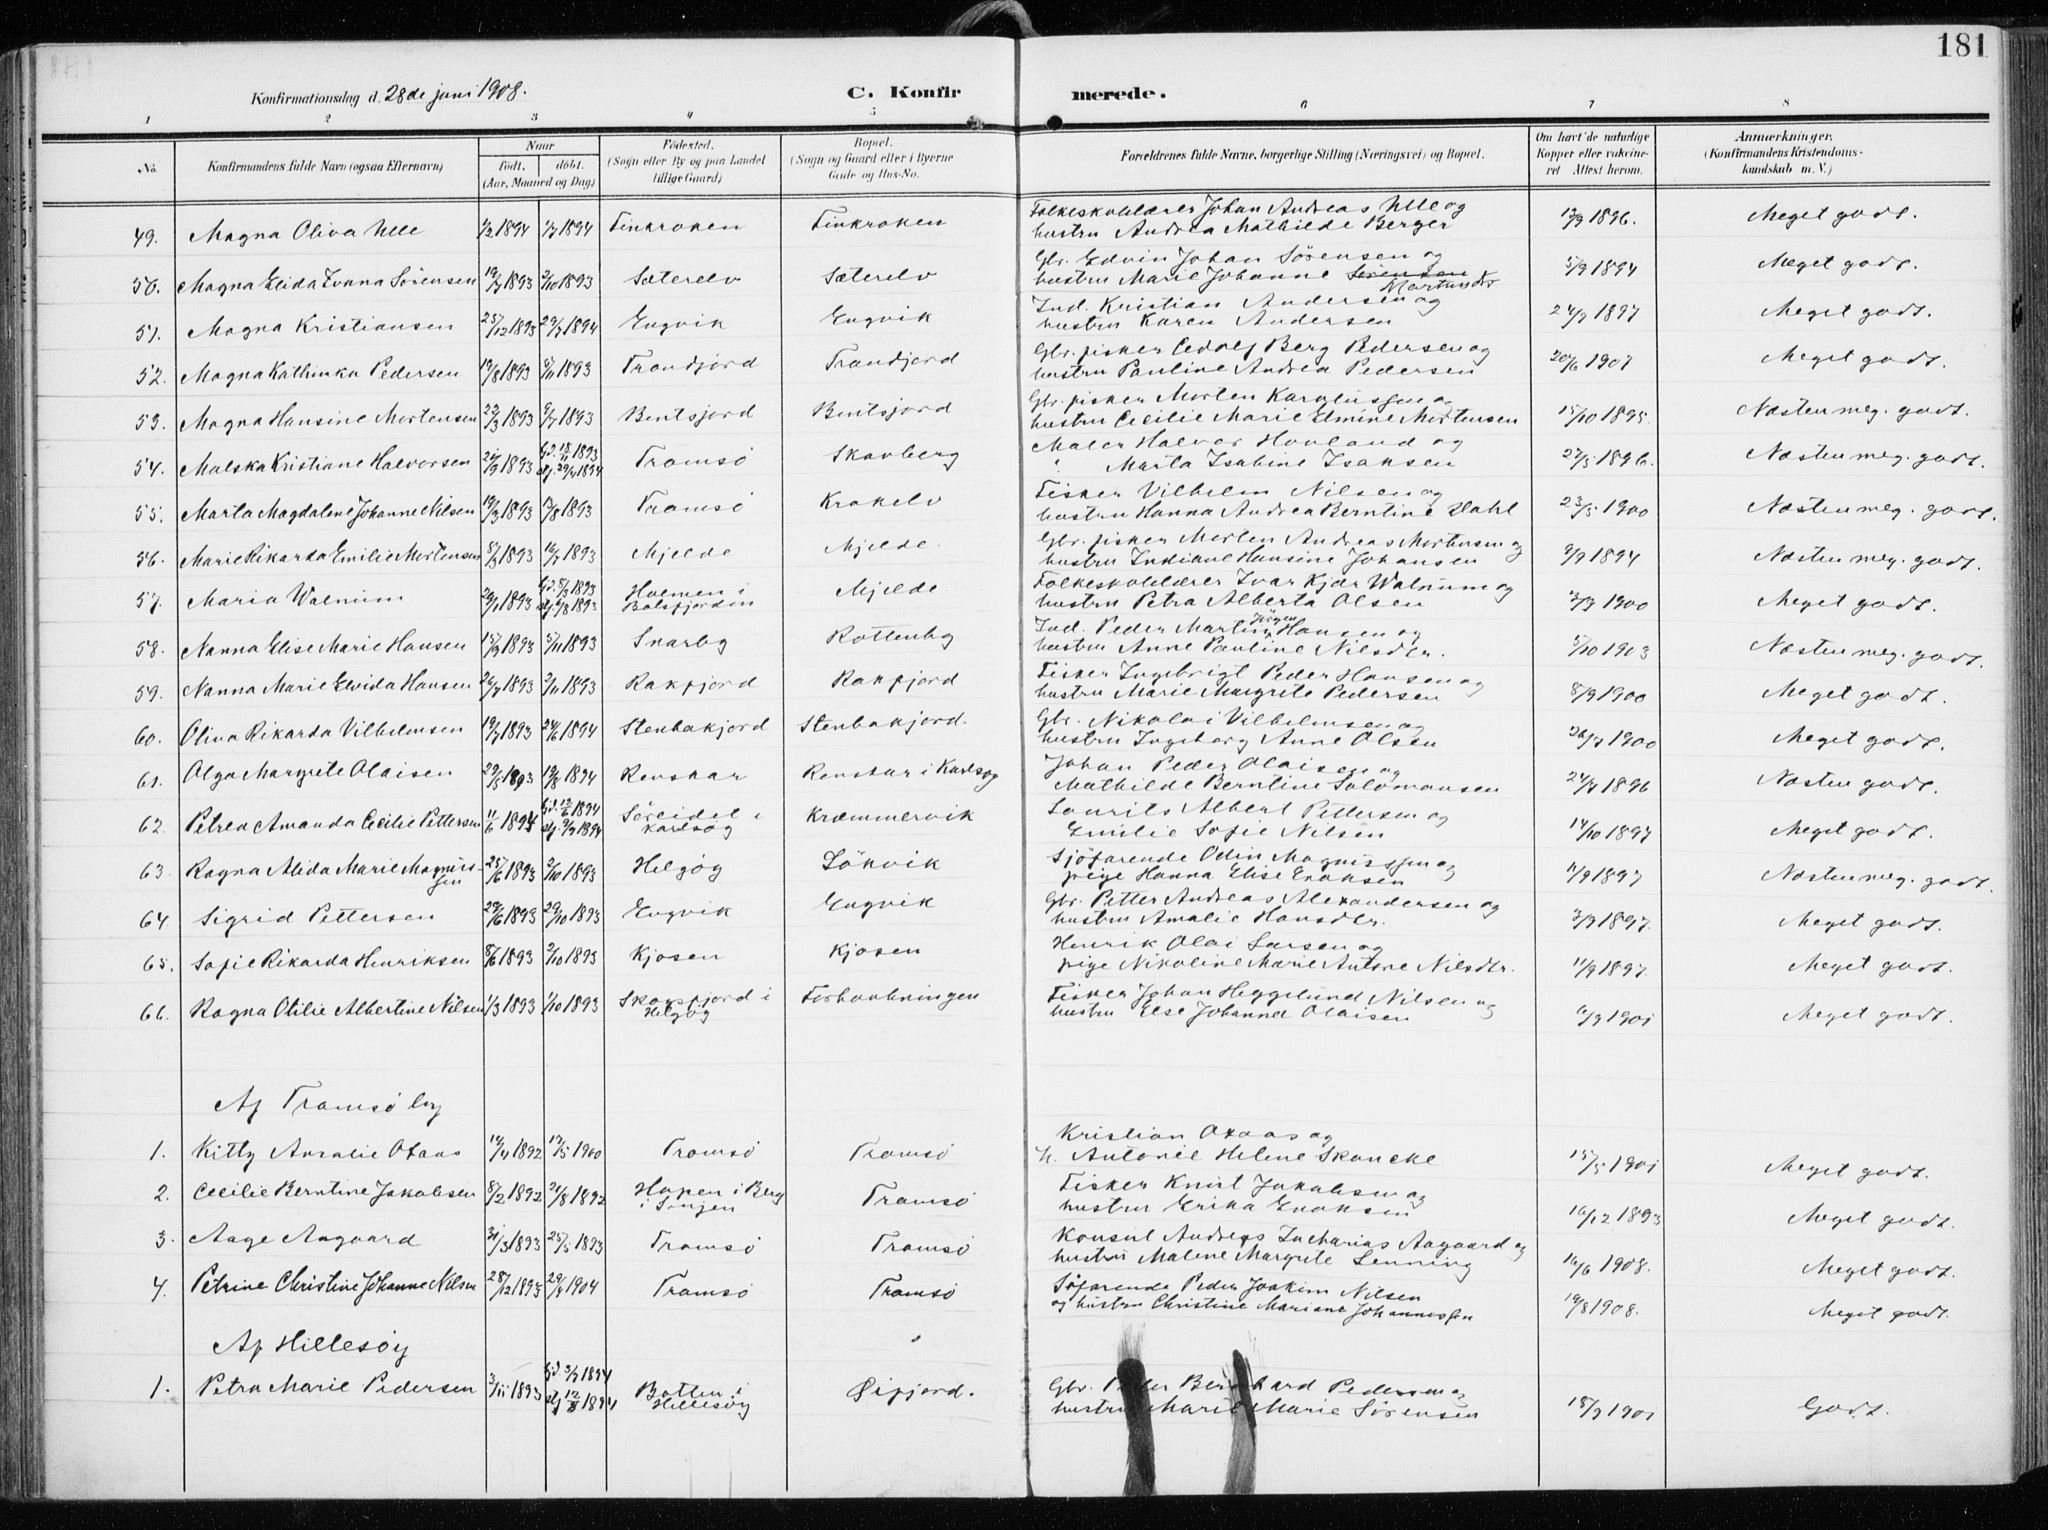 181
Konfirmationsdag d. 28de juni 1908. C. Konfirmerede.
1 2 3 4 5 6 7 8
No. Konfirmandens fulde Navn (ogsaa Efternavn) Naar födt. döbt. (Aar, Maaned og Dag) Födested. (Sogn eller By og paa Landet tillige Gaard) Bopæl. (Sogn og Gaard eller i Byerne Gade og Hus-No. Forældrenes fulde Navne, borgerlige Stilling (Næringsvei) og Bopæl. Om havt de naturlige Kopper eller vakcineret Attest herom. Anmærkninger. (Konfirmandens Kristendomskundskab m. V.)
49. Magna Oliva Ulle 1/2 1894 1/7 1894 Finkroken Finkroken Folkeskolelærer Johan Andreas Ulle og 12/9 1896. Meget godt.
hustru Andrea Mathilde Berger
50. Magna Elida Ivanna Sörensen 19/7 1893 2/10 1893 Sæterelv Sæterelv Gbr. Edvin Johan Sörensen og 5/9 1894 Meget godt.
hustru Marie Johanne Sörensen
51. Magna Kristiansen 25/12 1893 29/7 1894 Engvik Engvik Ind. Kristian Andersen og 24/9 1897 Meget godt.
hustru Karen Andersen
52. Magna Kathinka Pedersen 19/8 1893 5/11 1893 Trondjord Trondjord Gbr. fisker Adolf Berg Pedersen og 20/6 1907 Meget godt.
hustru Pauline Andrea Pedersen
53. Magna Hansine Mortensen 22/3 1893 9/7 1893 Bentsjord Bentsjord Gbr. fisker Morten Kareliussen og 15/10 1895. Næsten meg. godt.
hustru Cecilie Marie Elmine Mortensen
54. Malska Kristiane Halvorsen 21/9 1893 Gd. 18/11 1893 Tromsö Skavberg Maler Halvor Hovland og 27/5 1896. Næsten meg. godt.
Marta Isabine Isaksen
55. Marta Magdalene Johanne Nilsen 19/3 1893 13/8 1893 Tromsö Krokelv Fisker Vilhelm Nilsen og 23/5 1900 Næsten meg. godt.
hustru Hanna Andrea Berntine Dahl
56. Marie Rikarda Emilie Mortensen 5/3 1893 16/7 1893 Mjelde Mjelde. Gbr. fisker Morten Andreas Mortensen og 9/9 1894 Næsten meg. godt.
hustru Indiane Hansine Johansen
57. Maria Walnum 26/1 1893 Gd. 8/3 1893 Holmen i Mjelde Folkeskolelærer Ivar Kjær Walnum og 1900 Meget godt.
Balsfjorden hustru Petra Alberta Olsen
58. Nanna Elise Marie Hansen 15/9 1893 5/11 1893 Snarby Rottenby Ind. Peder Martin Jörgen Hansen og 5/10 1903 Næsten meg. godt.
hustru Anne Pauline Nilsdtr.
59. Nanna Marie Elvida Hansen 26/7 1893 2/11 1893 Rakfjord Rakfjord Fisker Ingebrigt Peder Hansen og 8/9 1900 Meget godt.
hustru Marie Margrete Pedersen
60. Olina Rikarda Vilhelmsen 19/7 1893 24/6 1894 Stenbakjord Stenbakjord. Gbr. Nikolai Vilhelmsen og 1900 Meget godt.
hustru Ingeborg Anne Olsen
61. Olga Margrete Olaisen 29/5 1893 19/8 1894 Renskar Renskar i Karlsøy Johan Peder Olaisen og 24/7 1896 Næsten godt.
Mathilde Berntine Salomonsen
62. Petrea Amanda Cecilie Pettersen 11/6 1894 Gd. 12/6 1894 Söreidet i Kræmmervik Laurits Albert Pettersen og 14/10 1897 Meget godt.
Karlsøy Emilie Sofie Nilsen
63. Ragna Alida Marie Magnussen 25/6 1893 2/10 1893 Helgøy Lökvik Sjöfarende Odin Magnussen og 11/9 1897 Næsten meg. godt.
pige Hanna Elise Eraksen
64. Sigrid Pettersen 29/6 1893 29/10 1893 Engvik Engvik Gbr. Petter Andreas Alexandersen og 3/9 1897. Meget godt.
hustru Amalie Hansdtr.
65. Sofie Rikarda Henriksen 8/6 1893 2/10 1893 Kjosen Kjosen Henrik Olai Larsen og 11/9 1897. Meget godt.
pige Nikoline Marie Antone Nilsdtr.
66. Ragna Otilie Albertine Nilsen 1/3 1893 1/10 1893 Skarsfjord i Forhaabningen Fisker Johan Heggelund Nilsen og 6/9 1901 Meget godt.
Helgøy hustru Else Johanna Olaisen
Af Tromsö by
1. Kitty Amalie Otaas 12/4 1892 13/5 1900 Tromsö Tromsö Kristian Otaas og 15/5 1901 Meget godt.
h. Antonie Helene Skancke
2. Cecilie Berntine Jakobsen 8/2 1892 21/8 1892 Hopen i Berg Tromsö Fisker Knut Jakobsen og 16/12 1893 Meget godt.
i Senjen hustru Erika Eraksen
3. Aage Aagaard 31/3 1893 25/5 1893 Tromsö Tromsö Konsul Andreas Zacharias Aagaard og 16/6 1908. Meget godt.
hustru Malene Margrete Lenning
4. Petrine Christine Johanne Nilsen 28/12 1893 29/4 1904 Tromsö Tromsö Söfarende Peder Joakim Nilsen 19/8 1908. Meget godt.
og hustru Christine Mariane Johannessen
Af Hillesøy
1. Petra Marie Pedersen 3/11 1893 Gd. 3/7 1894 Botten i Øifjord. Gbr. Peder Bernhard Pedersen og 18/9 1901 Godt.
Hillesøy hustru Marit Marie Sørensen